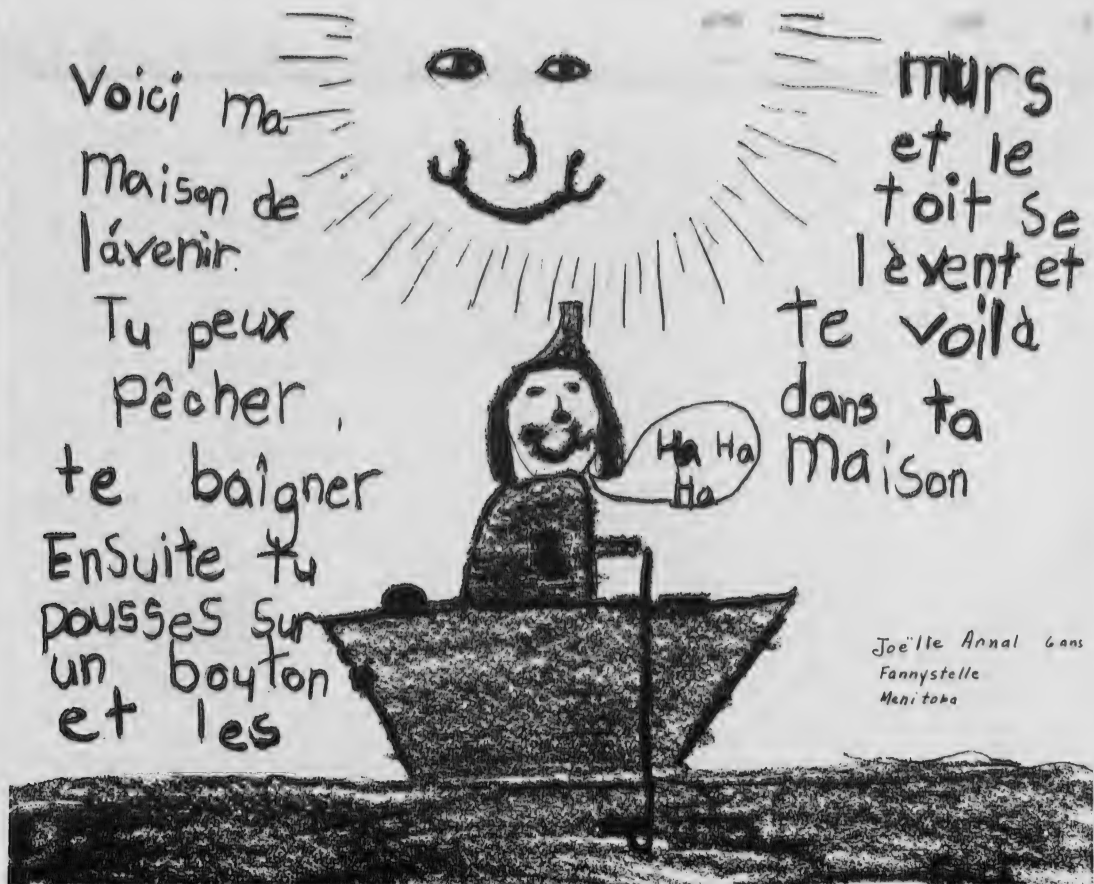 Voici ma
maison de
lávenir.
Tu peux
pêcher,
te baîgner
Ensuite tu
pousses sur
un bouton
et les
murs
et le
toit se
lèvent et
te voilà
dans ta
maison
Ha Ha
Ha
Joëlle Annal 6 ans
Fannystelle
Manitoba